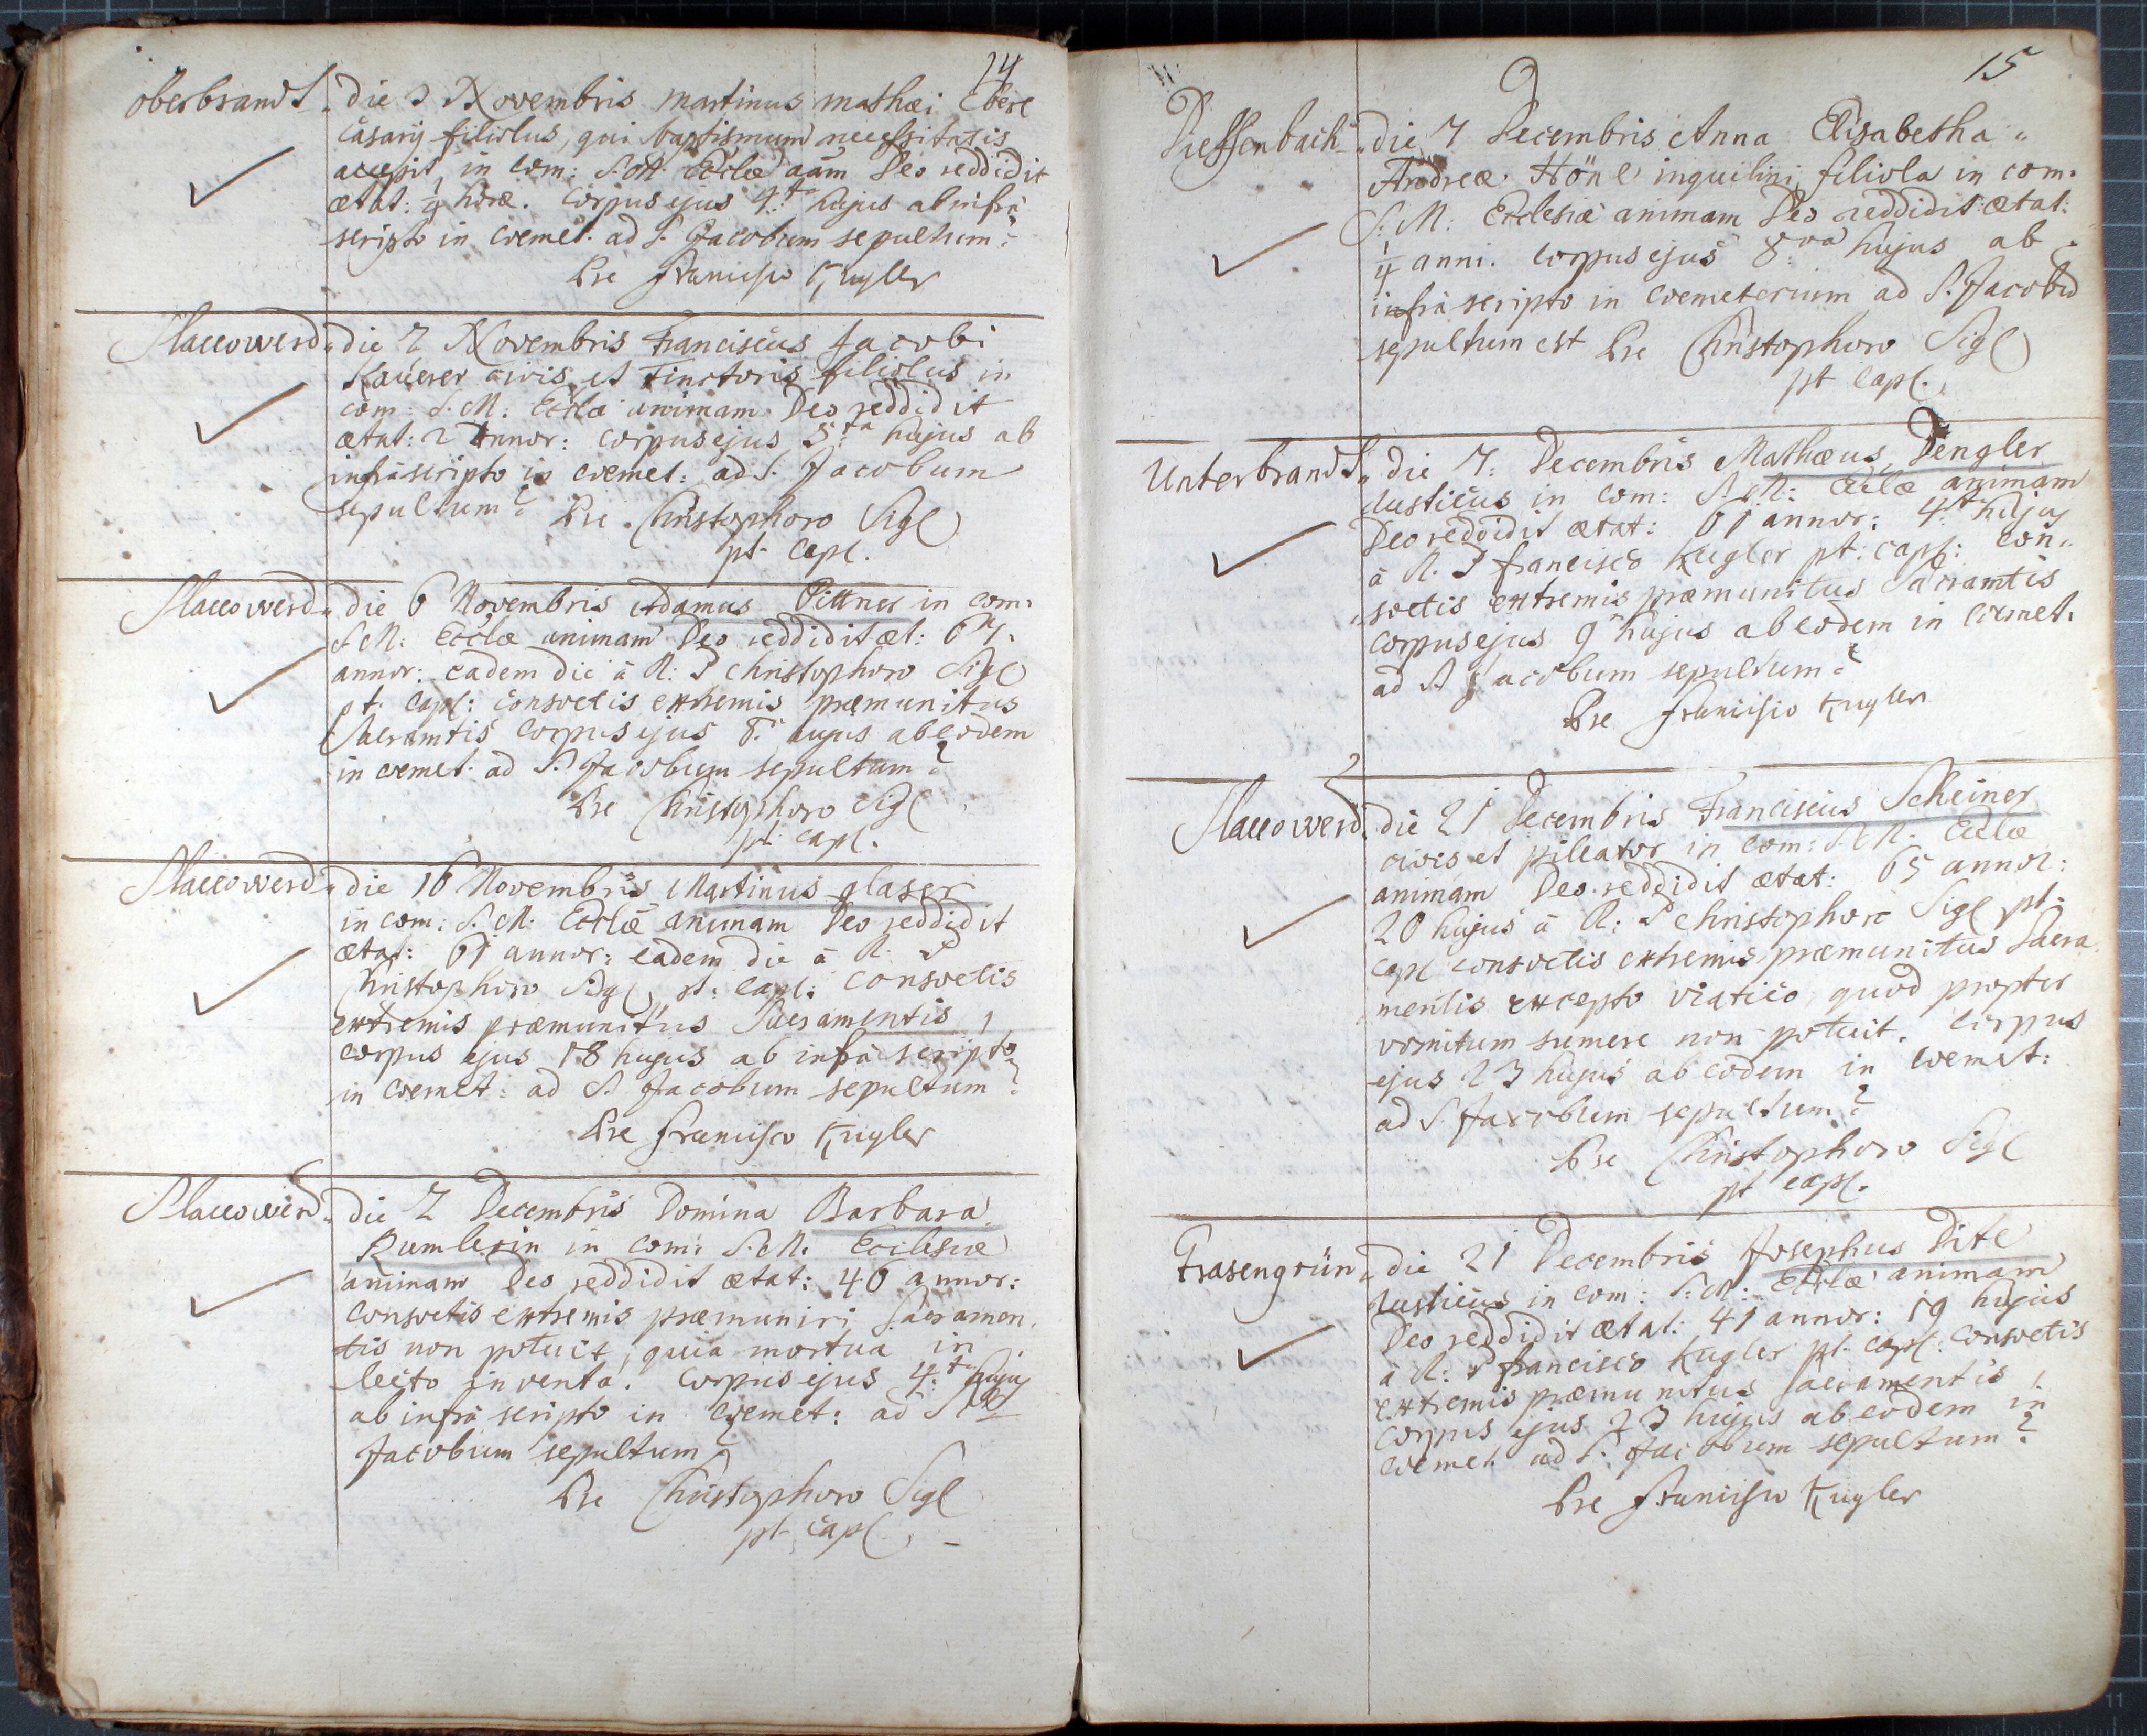 14
oberbrandt. die 3 Novembris Martinus mathæi Eberl
casarij filiolus, qui baptismum necessitatis
accepit, in com: S. M. Eccłæ aam Deo reddidit
ætat: 1/4 horæ. Corpus ejus 4ta hujus ab infrà
scripto in cœmet. ad S. Jacobum sepultum ē
Pre Francisco Kugler
Slaccowerd. die 2 Novembris Franciscus Jacobi
civis et Tinctoris filiolus in
com: S. M: Eccłæ animam Deo reddidit
ætat: 2 Annor: corpus ejus 5ta hujus ab
infrà scripto in cœmet: ad S. Jacobum
sepultum ē Pre. Christophoro Sigl
pt. Capl.
Slaccowerd. die 6 Novembris Adamus Pittner in com:
S. M: Eccłæ animam Deo reddidit æt: 64.
annor: eadem die à R: P Christophoro Sigl
pt. Capl: consvetis extremis præmunitus
Sacramtis Corpus ejus 8. hujus ab eodem
in cœmet. ad S. Jacobum sepultum ē
Pre Christophoro Sigl
pt. capl.
Slaccowerd. die 16 Novembris Martinus glaser
in com: S. M: Eccłæ animam Deo reddidit
ætat: 61 annor: eadem die à R. P
Christophoro Sigl pt: Capl: consvetis
extremis præmunitus Sacramentis,
corpus ejus 18 hujus ab infrà scripto
in cœmet: ad S. Jacobum sepultum ē
Pre Francisco Kugler
Slaccowerd. die 2 Decembris Domina Barbara
Rumlerin in com: S. M. Ecclesiæ
animam Deo reddidit ætat: 40 annor:
consvetis extremis præmuniri Sacramen,
tis non potuit, quia mortua in
lecto inventa. Corpus ejus 4ta hujus
ab infrà scripto in cœmet: ad S
Jacobum sepultum ē
Pre Christophoro Sigl
pt. Capl.
15
Dieffenbach. die 7 Decembris Anna Elisabetha
Andreæ Hönl inquilini filiola in com.
S. M: Ecclesiæ animam Deo reddidit ætat:
1/4 anni. corpus ejus 8va hujus ab
infrà scripto in cœmeterium ad S. Jacobũ
sepultum est Pre Christophoro Sigl
pt Capl.
Unterbrandt. die 7. Decembris Mathæus Dengler
Rusticus in com: S. M: Eccłæ animam
Deo reddidit ætat: 61 annor: 4t hujus
à R. P francisco Kugler pt: capl: con,
svetis extremis præmunitus Sacramtis
corpus ejus 9 hujus ab eodem in cœmet.
ad S Jacobum sepultum ē
Pre Francisco Kugler
Slaccowerd. die 21 Decembris Franciscus Scheiner
civis et pileator in com: S. M. Eccłæ
animam Deo reddidit ætat: 65 annor:
20 hujus à R: P Christophoro Sigl pt.
Capl consvetis extremis præmunitus Sacra
mentis excepto viatico, quod propter
vomitum sumere non potuit. Corpus
ejus 23 hujus ab eodem in cœmet:
ad S. Jacobum sepultum ē
Pre Christophoro Sigl
pt capl.
Grasengrün. die 21 Decembris Josephus Dite
Rusticus in com: S: M: Eccłæ animam
Deo reddidit ætat: 41 annor: 19 hujus
à R: P francisco Kugler pt. capl. consvetis
extremis præmunitus Sacramentis,
corpus ejus 23 hujus ab eodem in
cœmet. ad S: Jacobum sepultum ē
Pre Francisco Kugler
11